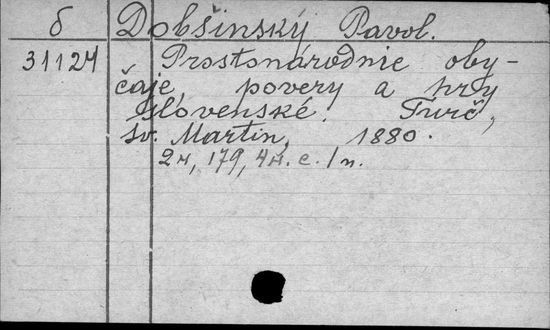 б Dobšinský Pavol.
31124 Prostonárodnie oby-
čaje, povery a hry
slovenské. Turč,
sv. Martin, 1880.
2н, 179, 4н. с. /п.